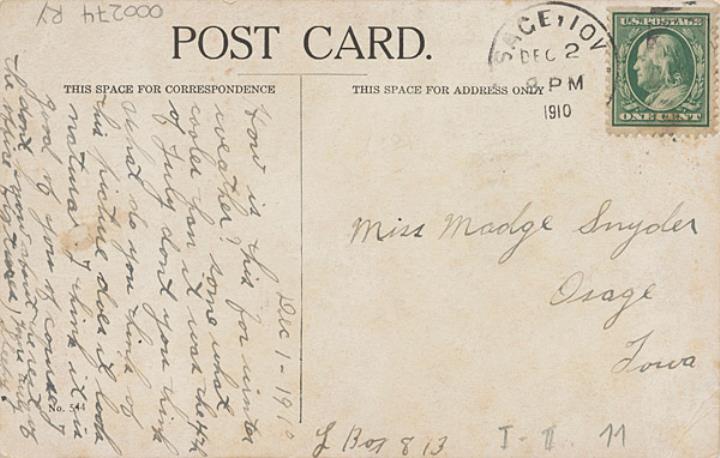 000274 RY
POST CARD.
SAGE, IOW
DEC 2
PM
1910
U.S. POSTAGE
ONE CENT
THIS SPACE FOR CORRESPONDENCE
THIS SPACE FOR ADDRESS ONLY
Dec 1 - 191
How is this for winter
weather? some what
cooler than it was the 4th
of July dont you think
what do you think of
this picture does it look
natural. I think it is
good of you of course
I dont know about the rest of
the
Miss Madge Snyder
Osage
Iowa
No. 544
L Box 813
I - II. 11